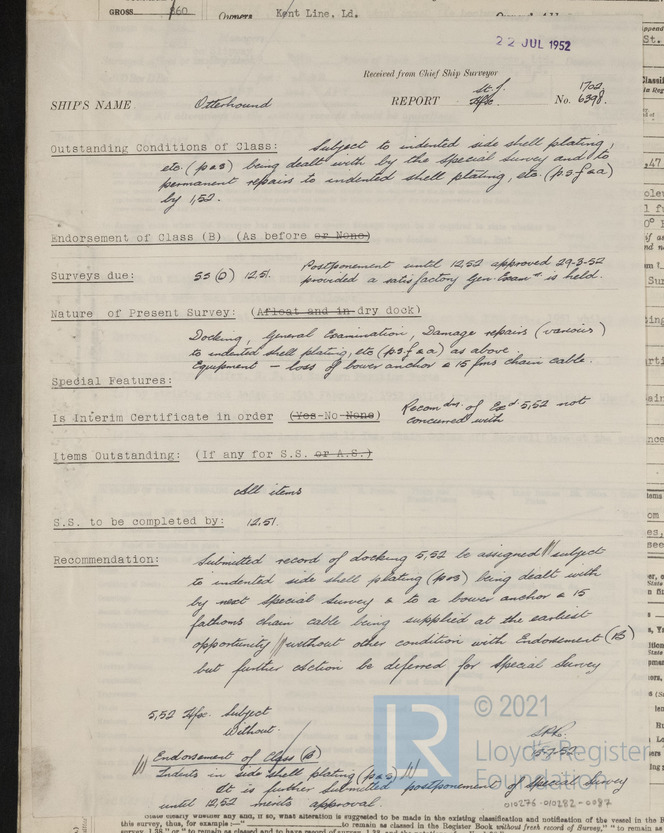 GROSS 860 Owners Kent Line, Ld.
22 JUL 1952
Received from Chief Ship Surveyor
SHIP'S NAME Otterhound REPORT St. J. Hfx. No. 1702. 6398.
Outstanding Conditions of Class: Subject to indented side shell plating,
etc. (p & s) being dealt with by the special survey and to
permanent repairs to indented shell plating, etc. (p.s.f & a)
by 1,52.
Endorsement of Class (B) (As before or None)
Surveys due: SS (6) 12,51. Postponement until 12,52 approved 29-3-52
provided a satisfactory Gen. Exam n. is held.
Nature of Present Survey: (Afloat and in dry dock)
Docking, General Examination, Damage repairs (various)
to indented shell plating, etc (p.s.f & a) as above.
Equipment — loss of bower anchor & 15 fms chain cable.
Special Features:
Is Interim Certificate in order (Yes-No-None) Recom dns. of Exd 5,52 not
concurred with
Items Outstanding: (If any for S.S. or A.S.)
All items
S.S. to be completed by: 12,51.
Recommendation: Submitted record of docking 5,52 be assigned // subject
to indented side shell plating (p & s) being dealt with
by next special survey & to a bower anchor & 15
fathoms chain cable being supplied at the earliest
opportunity // without other condition with Endorsement (B)
but further action be deferred for special survey
5,52 Hfx. Subject
Without.
Endorsement of Class (B)
Indents in side shell plating (p & s)
It is further submitted postponement of special survey
until 12,52 merits approval.
© 2021
LR
Lloyd's Register
Foundation
010276-010282-0087
state clearly whether any and, if so, what alteration is suggested to be made in the existing classification and notification of the vessel in the
this survey, thus, for example:—" to remain as classed in the Register Book without fresh record of Survey,"